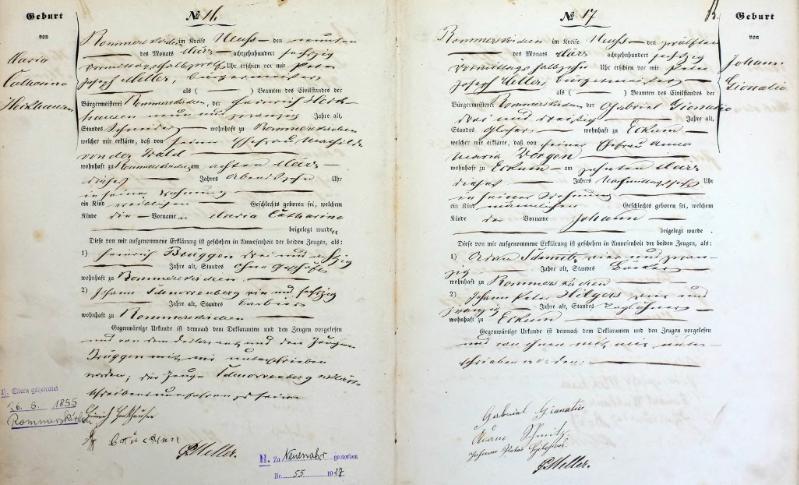 Geburt
von
Maria
Catharina
Herkhausen
№ 16.
Rommerskirchen im Kreise Neuss den neunten
des Monats März achtzehnhundert sechzig
Vormittags halb zehn Uhr erschien vor mir Peter
Josef Meller, Bürgermeister
als ( ) Beamten des Civilstandes der
Bürgermeisterei Rommerskirchen, der Heinrich Herk-
hausen neun und zwanzig Jahre alt,
Standes Schmied wohnhaft zu Rommerskirchen
welcher mir erklärte, daß von seiner Ehefrau Mathilde
von der Wald
wohnhaft zu Rommerskirchen am achten März
dieses Jahres Abends zehn Uhr
in seiner Wohnung
ein Kind weiblichen Geschlechts geboren sei, welchem
Kinde die Vornamen Maria Catharina
beigelegt wurden.
Diese von mir aufgenommene Erklärung ist geschehen in Anwesenheit der beiden Zeugen, als:
1) Heinrich Brüggen drei und
Jahre alt, Standes ohne Geschäft
wohnhaft zu Rommerskirchen
2) Johann Schnorrenberg ein und sechzig
Jahre alt, Standes Barbier
wohnhaft zu Rommerskirchen
Gegenwärtige Urkunde ist demnach dem Deklaranten und den Zeugen vorgelesen
und von dem Deklaranten und dem Zeugen
Brüggen mit mir unterschrieben
worden, der Zeuge Schnorrenberg erklärte
schreibens unerfahren zu seien
Heinrich
PMeller.
Rommerskirchen
H. Zu Neuenahr gestorben
Nr. 55 19
Geburt
von
Johann
Gionatio
№ 17.
Rommerskirchen im Kreise Neuss den zwölften
des Monats März achtzehnhundert sechzig
Vormittags halb zehn Uhr erschien vor mir Peter
Josef Meller, Bürgermeister
als ( ) Beamten des Civilstandes der
Bürgermeisterei Rommerskirchen der Gabriel Gionatio
drei und dreißig Jahre alt,
Standes Glaser wohnhaft zu Eckum
welcher mir erklärte, daß von seiner Ehefrau Anna
Maria
wohnhaft zu Eckum am zehnten März
dieses Jahres Nachmittags Uhr
in seiner Wohnung
ein Kind männlichen Geschlechts geboren sei, welchem
Kinde der Vorname Johann
beigelegt wurde.
Diese von mir aufgenommene Erklärung ist geschehen in Anwesenheit der beiden Zeugen, als:
1) Adam Schmitz vier und zwan-
zig Jahre alt, Standes
wohnhaft zu Rommerskirchen
2) Johann Peter Hilgers vier und
zwanzig Jahre alt, Standes Taglöhner
wohnhaft zu Eckum
Gegenwärtige Urkunde ist demnach dem Deklaranten und den Zeugen vorgelesen
und von ihnen mit mir unter-
schrieben worden.
Gabriel Gionatio
Adam Schmitz
Johann Peter
PMeller.